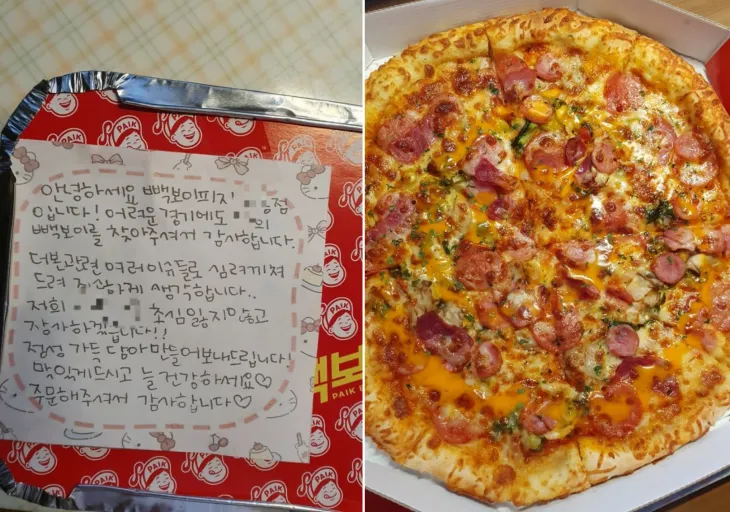 안녕하세요 빽보이피자 점
입니다! 어려운 경기에도 의
빽보이를 찾아주셔서 감사합니다.
더본관련 여러이슈들로 심려끼쳐
드려 죄송하게 생각합니다..
저희 초심잃지않고
감사하겠습니다!!
정성 가득 담아 만들어보내드립니다!
맛있게드시고 늘건강하세요♡
주문해주셔서 감사합니다♡
PAIK
PAIK
PAIK
PAIK
PAIK